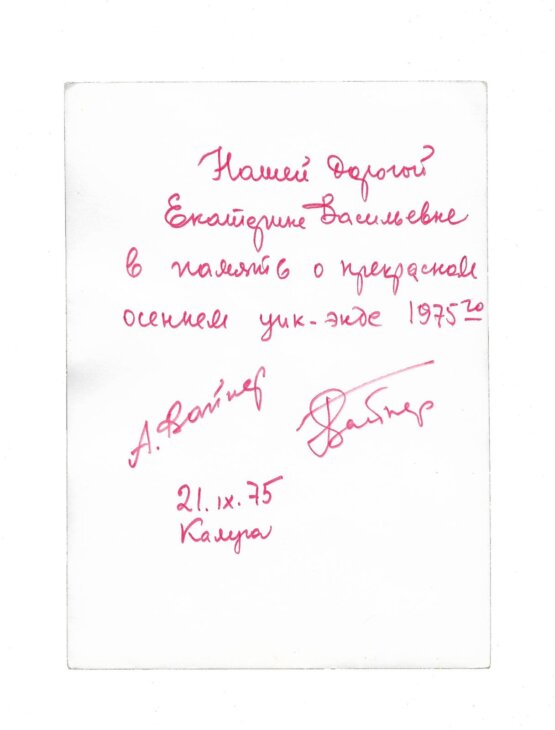 Нашей дорогой
Екатерине Васильевне
в память о прекрасном
осеннем уик-энде 1975го
А. Вайнер
Г Вайнер
21.IX.75
Калуга